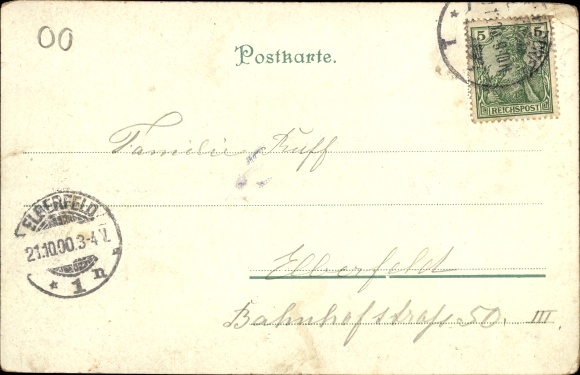 00
Postkarte.
5 5
REICHSPOST
Familie Ruff
ELBERFELD
21.10.00.3-4V.
* 1 n
Elberfeldt
Bahnhofstraße 50. III